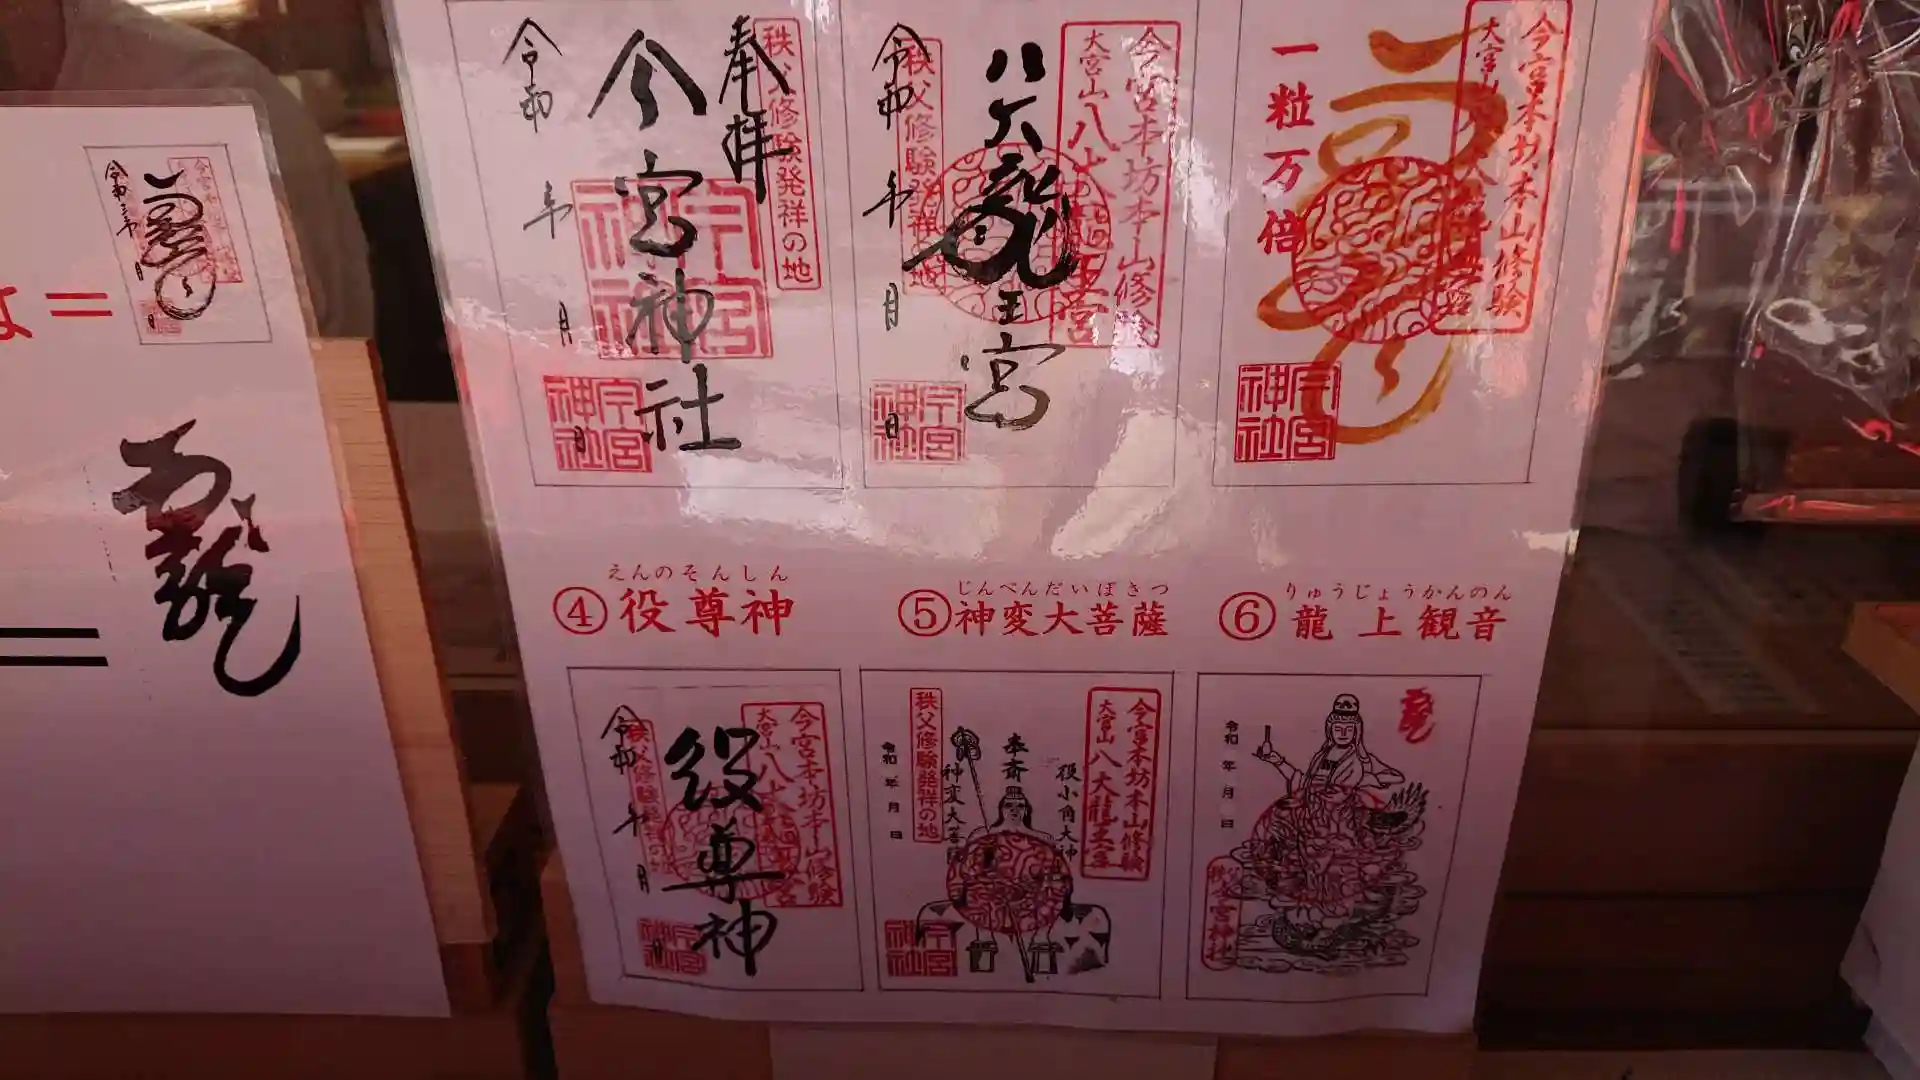 奉拝
秩父修験発祥の地
今宮神社
今宮神社
令和 年 月 日
今宮神社
今宮本坊本山修験
大宮山八大龍王宮
八大龍王宮
秩父修験発祥の地
令和 年 月 日
今宮神社
今宮本坊本山修験
大宮山
一粒万倍
今宮神社
えんのそんしん
④役尊神
じんべんだいぼさつ
⑤神変大菩薩
りゅうじょうかんのん
⑥龍上観音
今宮本坊本山修験
大宮山八大龍王宮
役尊神
令和 年 月
今宮神社
今宮本坊本山修験
大宮山八大龍王宮
役小角大神
奉斎
神変大菩薩
秩父修験発祥の地
令和 年 月 日
今宮神社
令和 年 月 日
秩父今宮神社
=
=